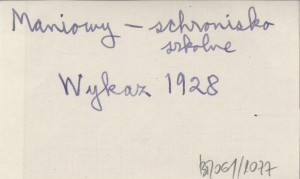 Maniowy – schronisko
szkolne
Wykaz 1928